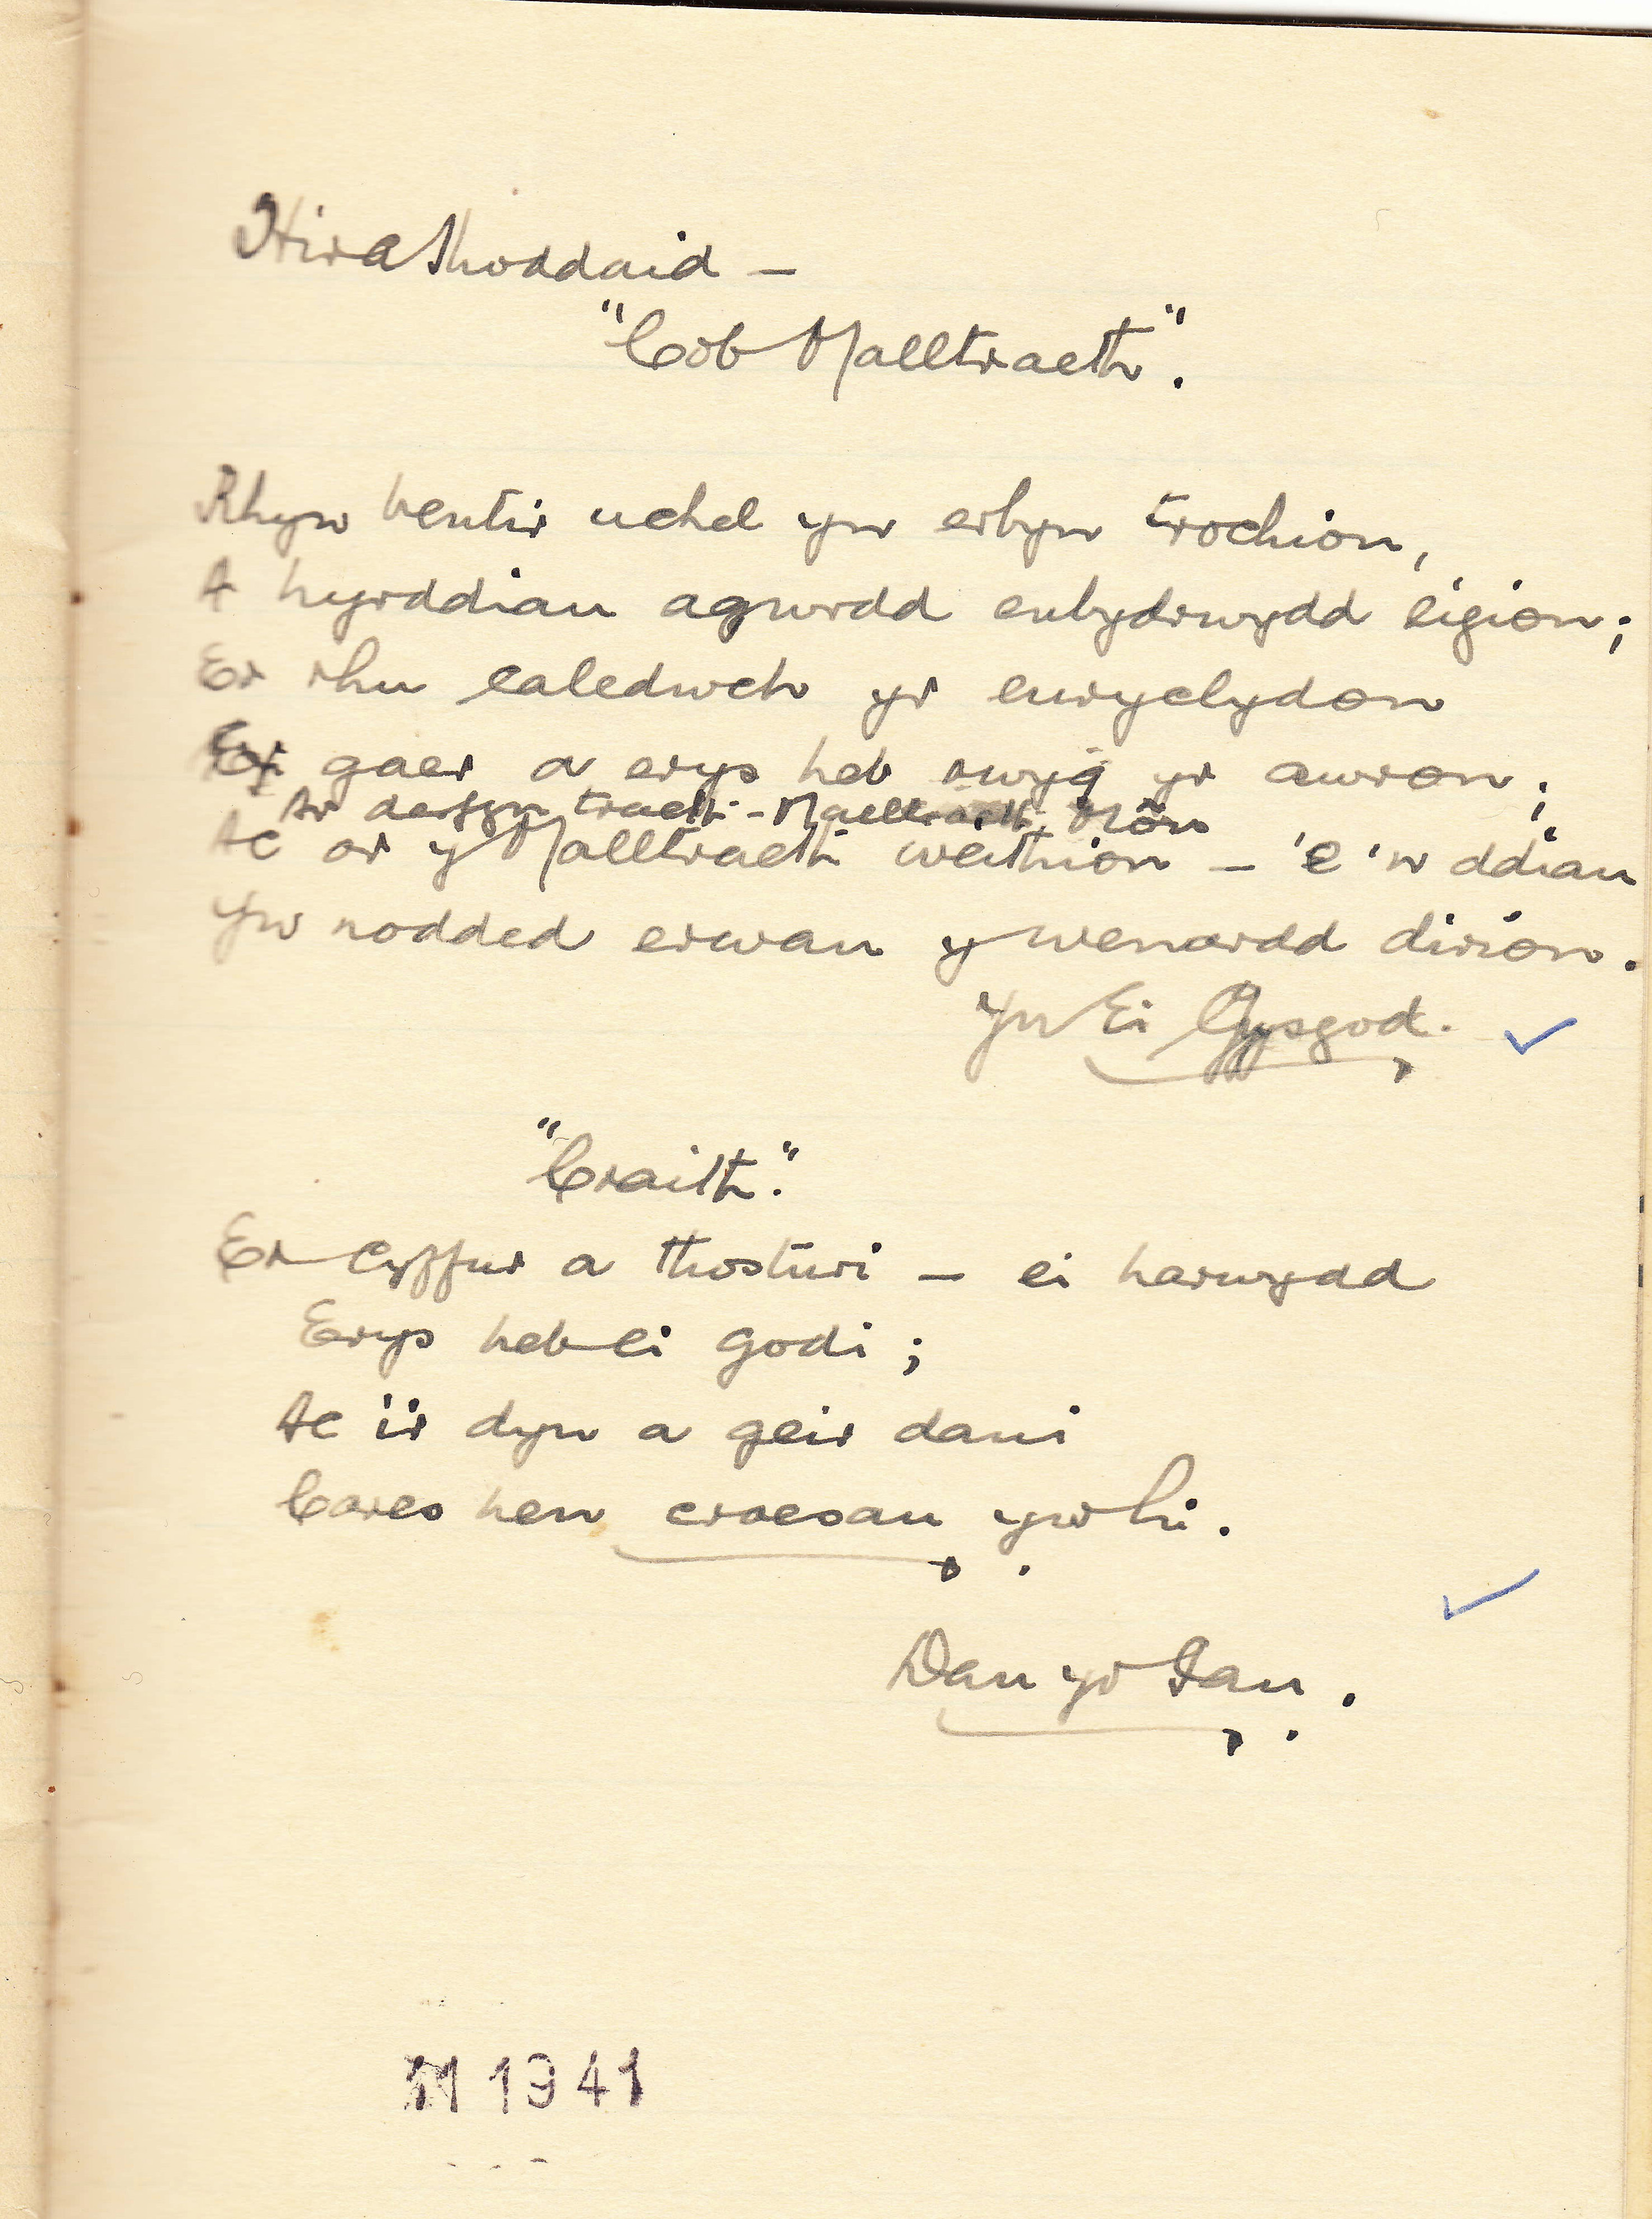 Hir a thoddaid —
"Cob Malltraeth".
Rhyw bentir uchel yw erbyn trochion,
A hyrddiau agwrdd enbydrwydd eigion;
Er rhu caledwch yr ewryclydon
Er gaer a erys heb rwyg yr awron;
Ar derfyn traeth - Malltraeth, Môn
Ac ar y Malltraeth weithion — 'e 'n ddiau
Yw nodded erwau y wenardd dirion.
Yn Ei Gysgod.
"Craith."
Er cyffur a thosturi — ei harwydd
Erys heb ei godi;
Ac i'r dyn a geir dani
Cares hen croesau yw hi.
Dan yr Iau.
11 1941